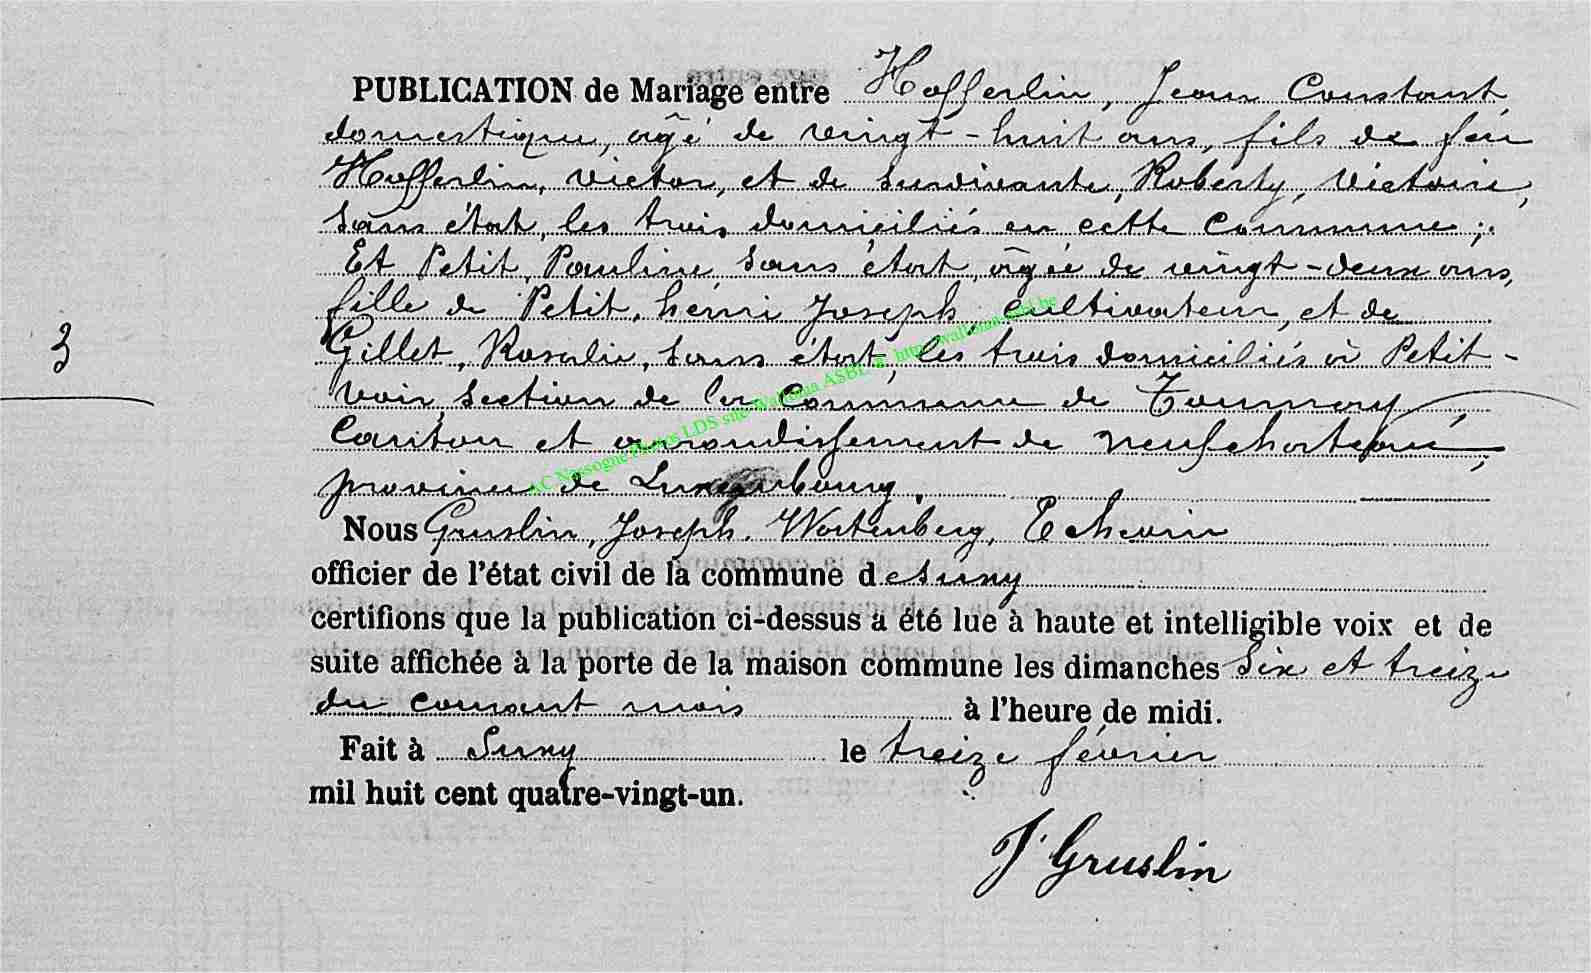 PUBLICATION de Mariage entre Hofferlin, Jean Constant,
domestique, âgé de vingt-huit ans, fils de feu
Hofferlin, Victor, et de survivante, Roberty, Victoire,
sans état, les trois domiciliés en cette commune;
Et Petit, Pauline sans état, âgée de vingt-deux ans,
fille de Petit, henri Joseph, cultivateur, et de
Gillet, Rosalie, sans état, les trois domiciliés à Petit-
3
voir, section de la commune de Tournay,
Canton et arrondissement de neufchateau,
province de Luxembourg.
AC Nassogne Photos LDS site Wallonia ASBL
Nous Gruslin, Joseph. Wortenberg, Echevin
officier de l'état civil de la commune de suxy
certifions que la publication ci-dessus a été lue à haute et intelligible voix et de
suite affichée à la porte de la maison commune les dimanches six et treize
du courant mois à l'heure de midi.
Fait à Suxy le treize février
mil huit cent quatre-vingt-un.
J Gruslin